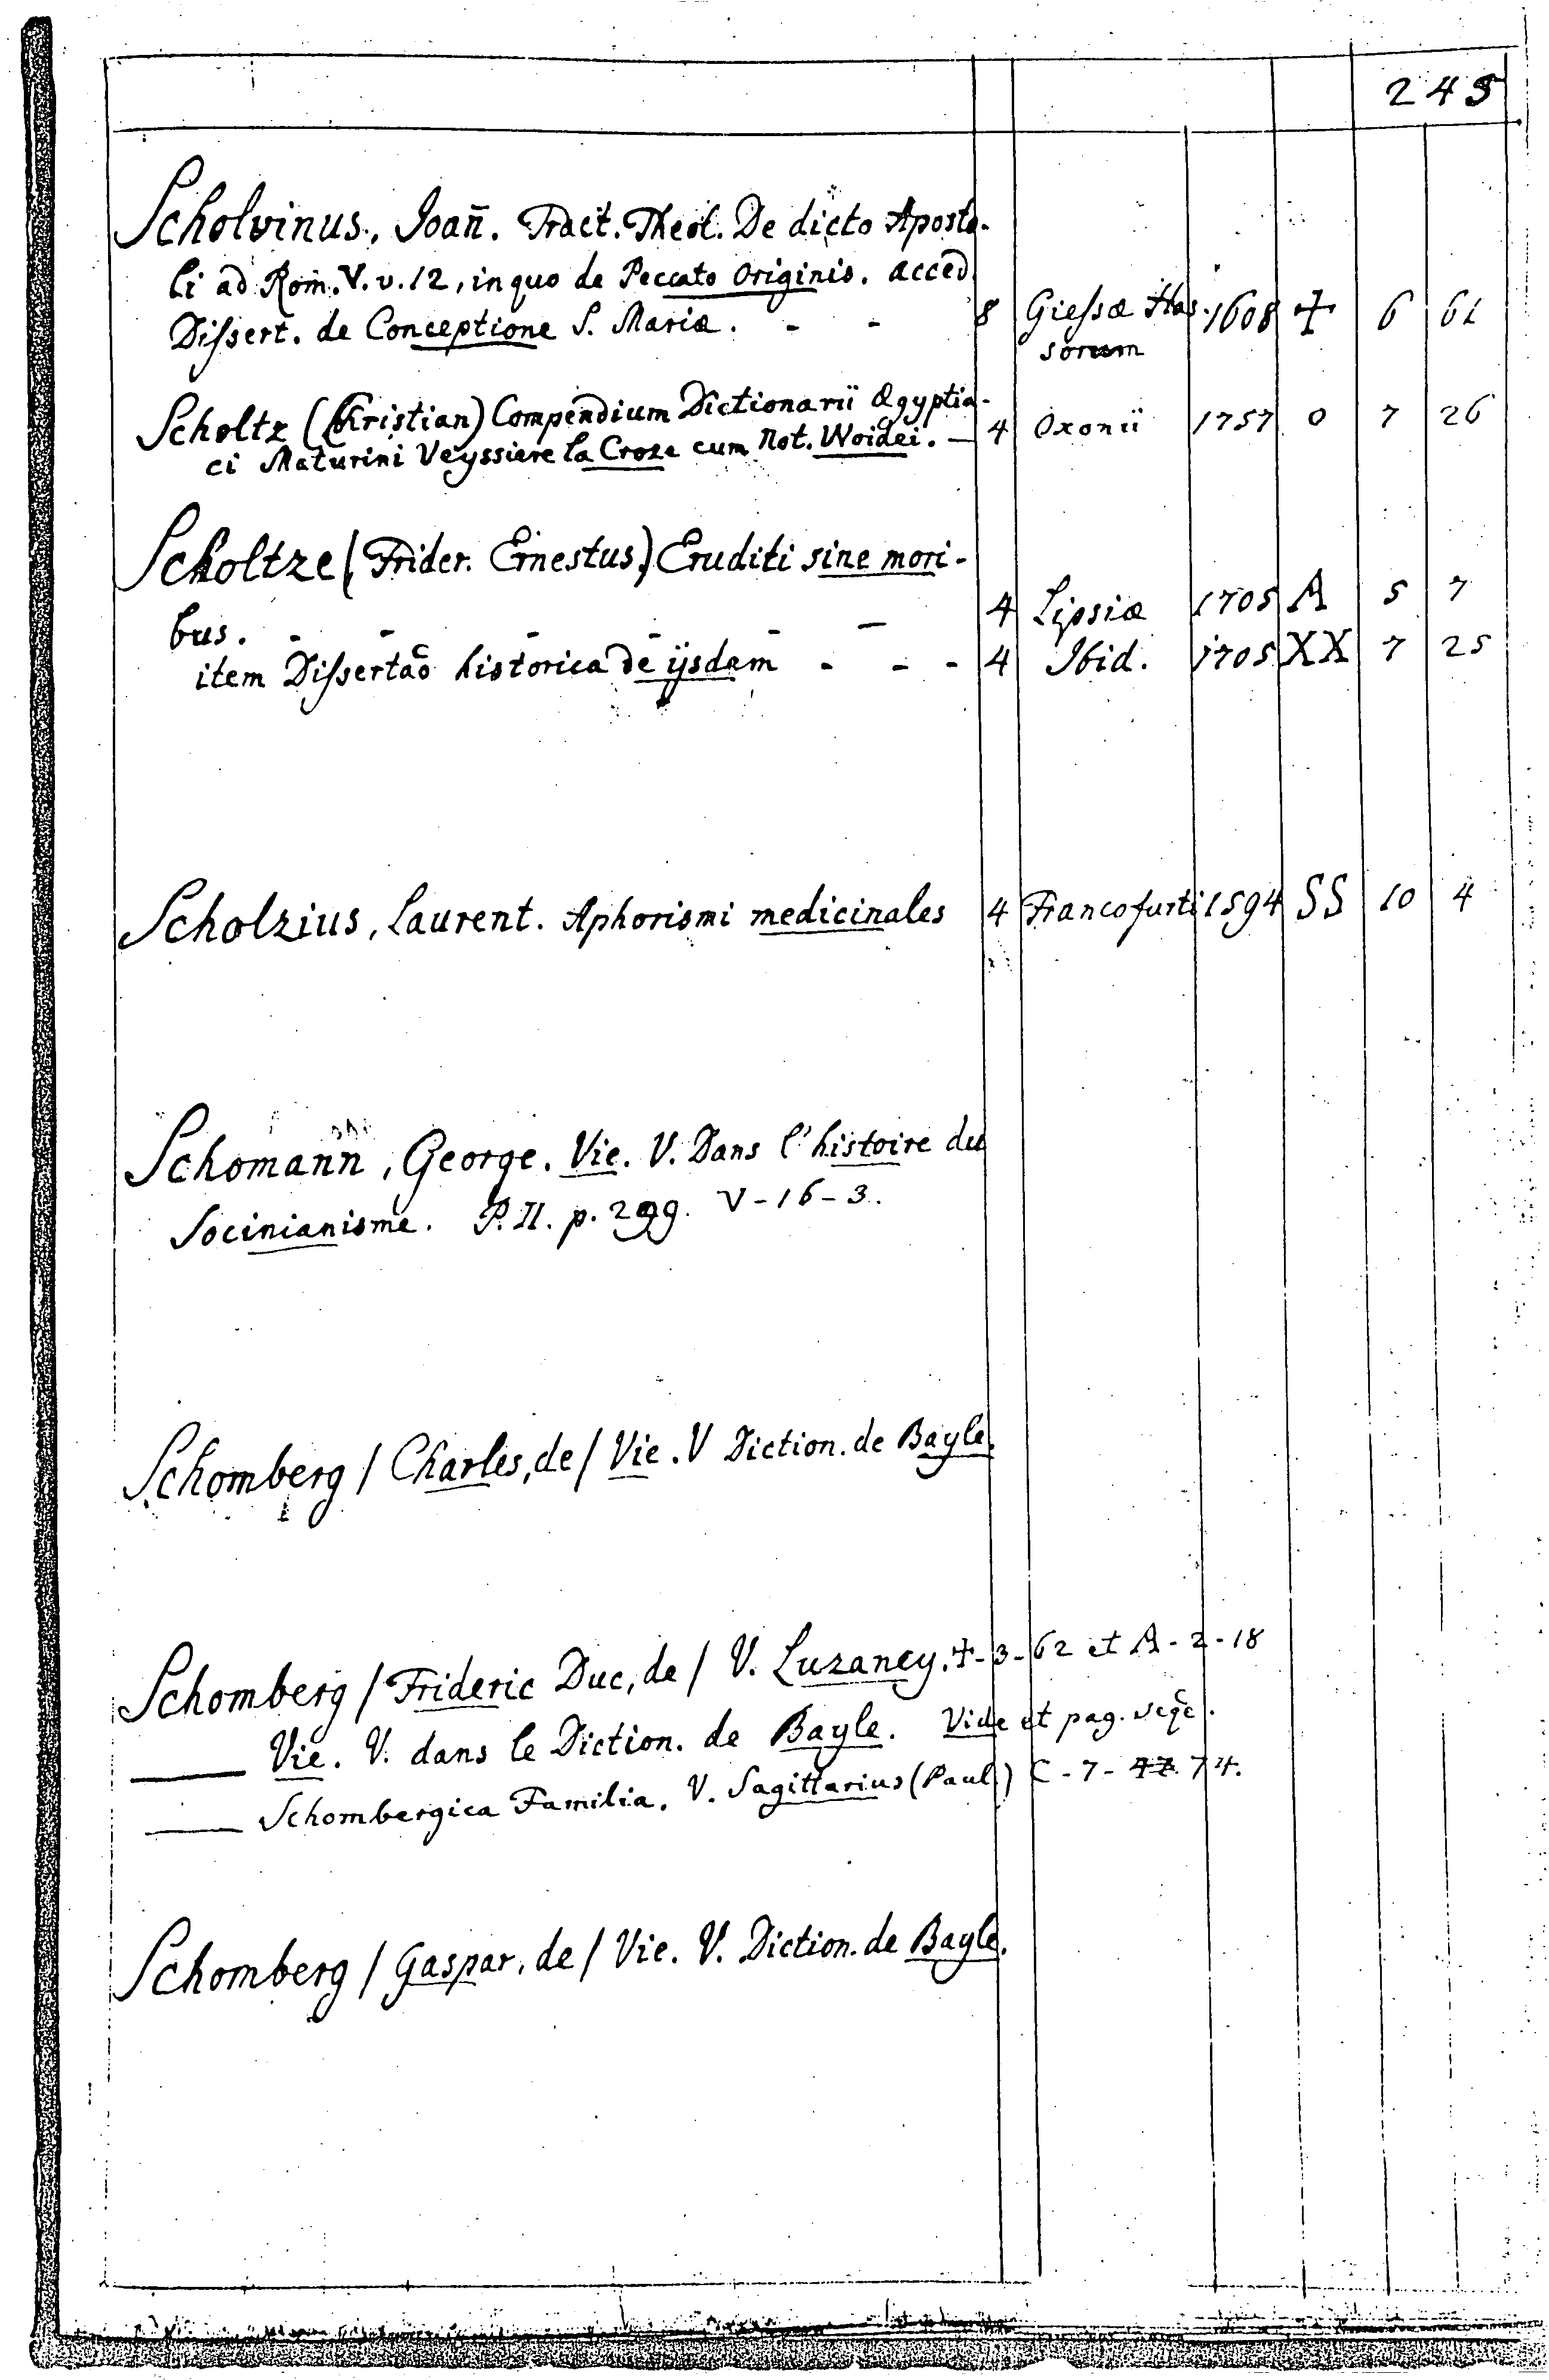 245
Scholvinus, Joañ. Tract. Theol. De dicto Aposto-
li ad Rom. V. v. 12, in quo de Peccato Originis. acced
Dissert. de Conceptione S. Mariæ. - - 8 Giessæ Has- 1608 + 6 61
sorum
Scholtz (Christian) Compendium Dictionarii Ægyptia-
ci Maturini Veyssiere la Croze cum Not. Woidei. — 4 Oxonii 1757 O 7 26
Scholtze (Frider. Ernestus) Eruditi sine mori-
bus. - - - - - — 4 Lipsiæ 1705 A 5 7
item Dissertaõ historica de ijsdem - - - 4 Ibid. 1705 XX 7 25
Scholzius, Laurent. Aphorismi medicinales 4 Francofurti 1594 SS 10 4
Schomann, George. Vie. V. Dans l'histoire du
Socinianisme. P. II. p. 299. V-16-3.
Schomberg / Charles, de / Vie. V Diction. de Bayle.
Schomberg / Frideric Duc, de / V. Luzancy. +-3-62 et A-2-18
— Vie. V. dans le Diction. de Bayle. Vide et pag. seqe.
— Schombergica Familia. V. Sagittarius (Paul) C-7- 74.
Schomberg / Gaspar, de / Vie. V. Diction. de Bayle.